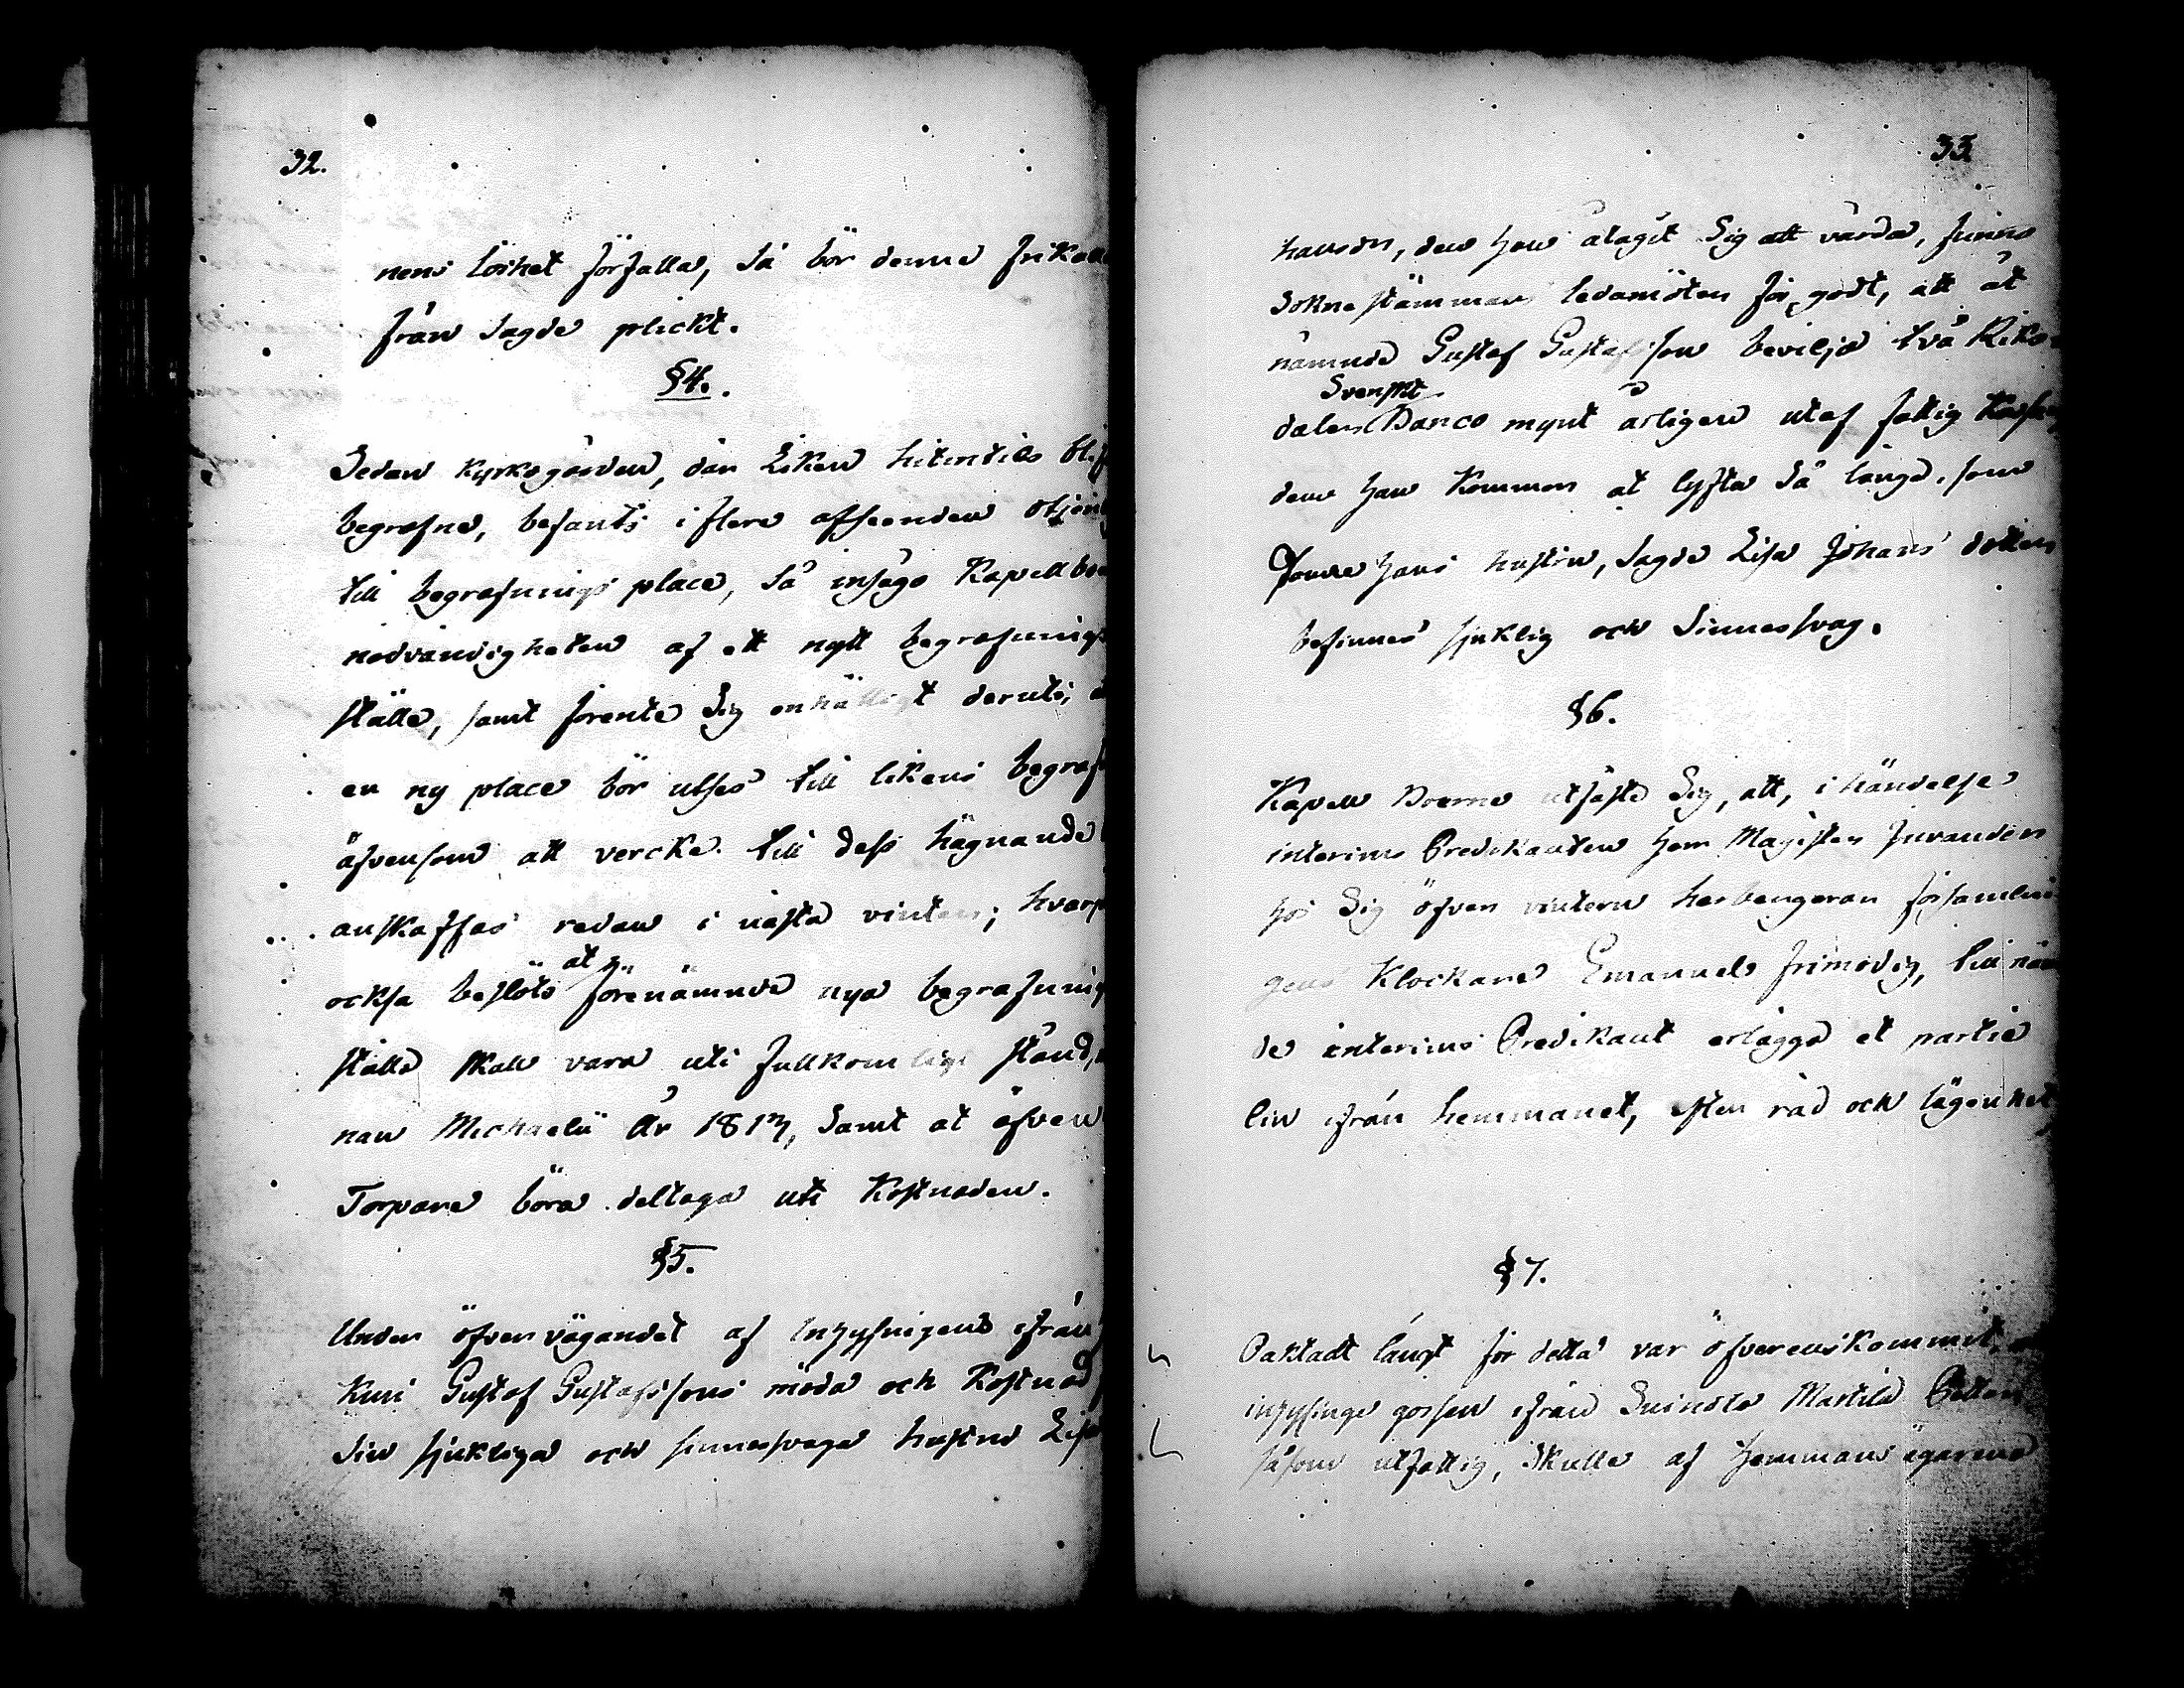 32.
nens löshet förfalla, Så bör denne frikal
från Sagde plickt.
§4.
Sedan Kyrkogården, där Liken hitintils bl.
begrafne, befants i flere afseenden otjen
till begrafnings place, Så insågo Kapellbo
nödvändigheten af ett nytt begrafnings
ställe, samt förente Sig enhälligt deruti,
en ny place bör utses till likens begraf
äfvensom att vercke till dess hägnande
anskaffas redan i nästa vinter; hvarp
också beslöts at förenämnde nya begrafning
ställe skall vara uti fullkomligt stånd,
nan Michaelii År 1817, Samt at äfven
Torpare böra deltaga uti Kostnaden.
§5.
Under öfvervägandet af Inhysnigens ifrån
Kuni Gustaf Gustafssons möda och Kostnad
Sin sjukliga och sinnessvaga hustru Lisa
33
hansdr, den han åtagit Sig att vårda, funno
Sokne stämmans ledamöten för godt, att åt
nämnde Gustaf Gustafsson bevilja två Riks
Svenskt
daler Banco mynt årligen utaf fattig Kassan,
dem han Kommer at lyfta Så länge, som
hans hustru, Sagde Lisa Johans dotter
befinnes sjuklig och Sinnessvag.
§6.
Kapell Boerne utfäste Sig, att, i händelse
interims Predikanten Herr Magister
hos Sig öfver vintern herbergerar församlin
gens Klockare Emanuel Frimodig, till näm
de interims Predikant erlägga et partie
lin ifrån hemmanet, efter råd och lägenhet
§7.
Oaktadt långt för detta var öfverenskommit,
inhysinge gossen ifrån Matila
såsom utfattig, Skulle af Hemmans ägarene